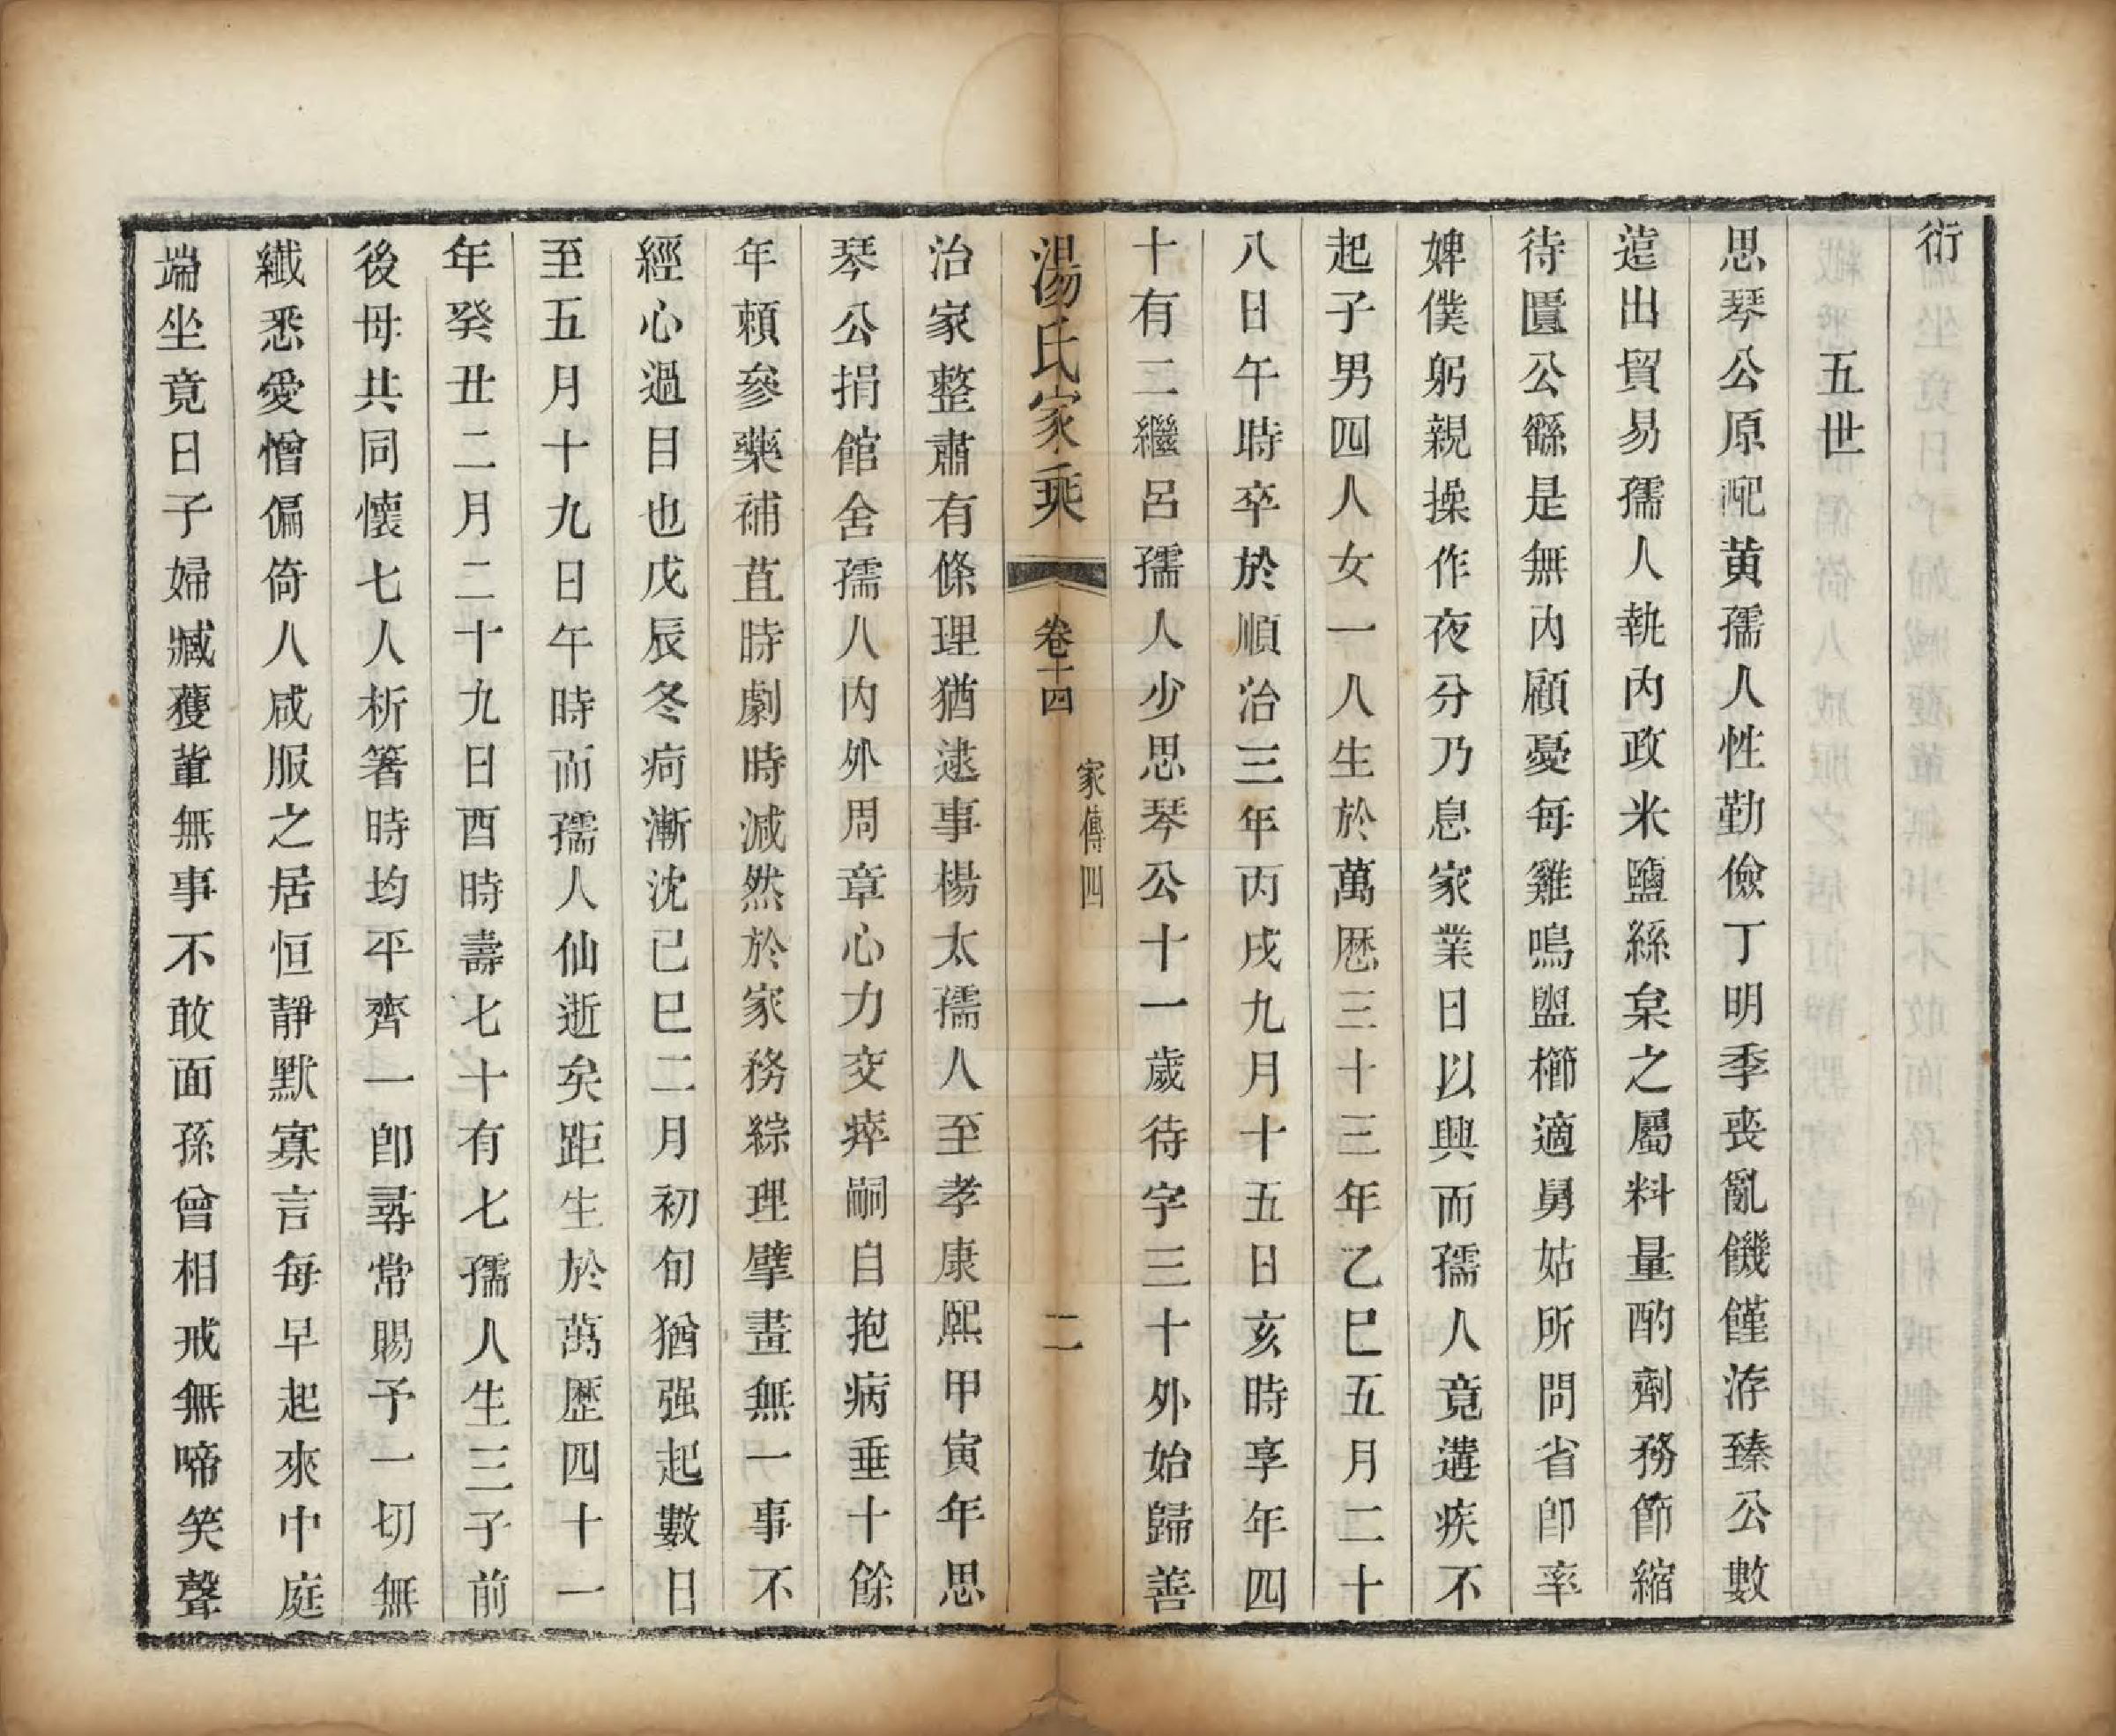 衍
五世
思琴公原配黃孺人性勤儉丁明季喪亂饑饉洊臻公數
遠出貿易孺人執內政米鹽絲枲之屬料量酌劑務節縮
待匱公繇是無內顧憂每雞鳴盥櫛適舅姑所問省卽率
婢僕躬親操作夜分乃息家業日以興而孺人竟遘疾不
起子男四人女一人生於萬曆三十三年乙巳五月二十
八日午時卒於順治三年丙戌九月十五日亥時享年四
十有二繼呂孺人少思琴公十一歲待字三十外始歸善
湯氏家乘
卷十四
家傳四
二
治家整肅有條理猶逮事楊太孺人至孝康熙甲寅年思
琴公捐館舍孺人內外周章心力交瘁嗣自抱病垂十餘
年頼參藥補苴時劇時減然於家務綜理擘畫無一事不
經心過目也戊辰冬疴漸沈己巳二月初旬猶强起數日
至五月十九日午時而孺人仙逝矣距生於萬歷四十一
年癸丑二月二十九日酉時壽七十有七孺人生三子前
後母共同懷七人析箸時均平齊一卽尋常賜予一切無
纖悉愛憎偏倚人咸服之居恒靜默寡言每早起來中庭
端坐竟日子婦臧獲輩無事不敢面孫曾相戒無啼笑聲